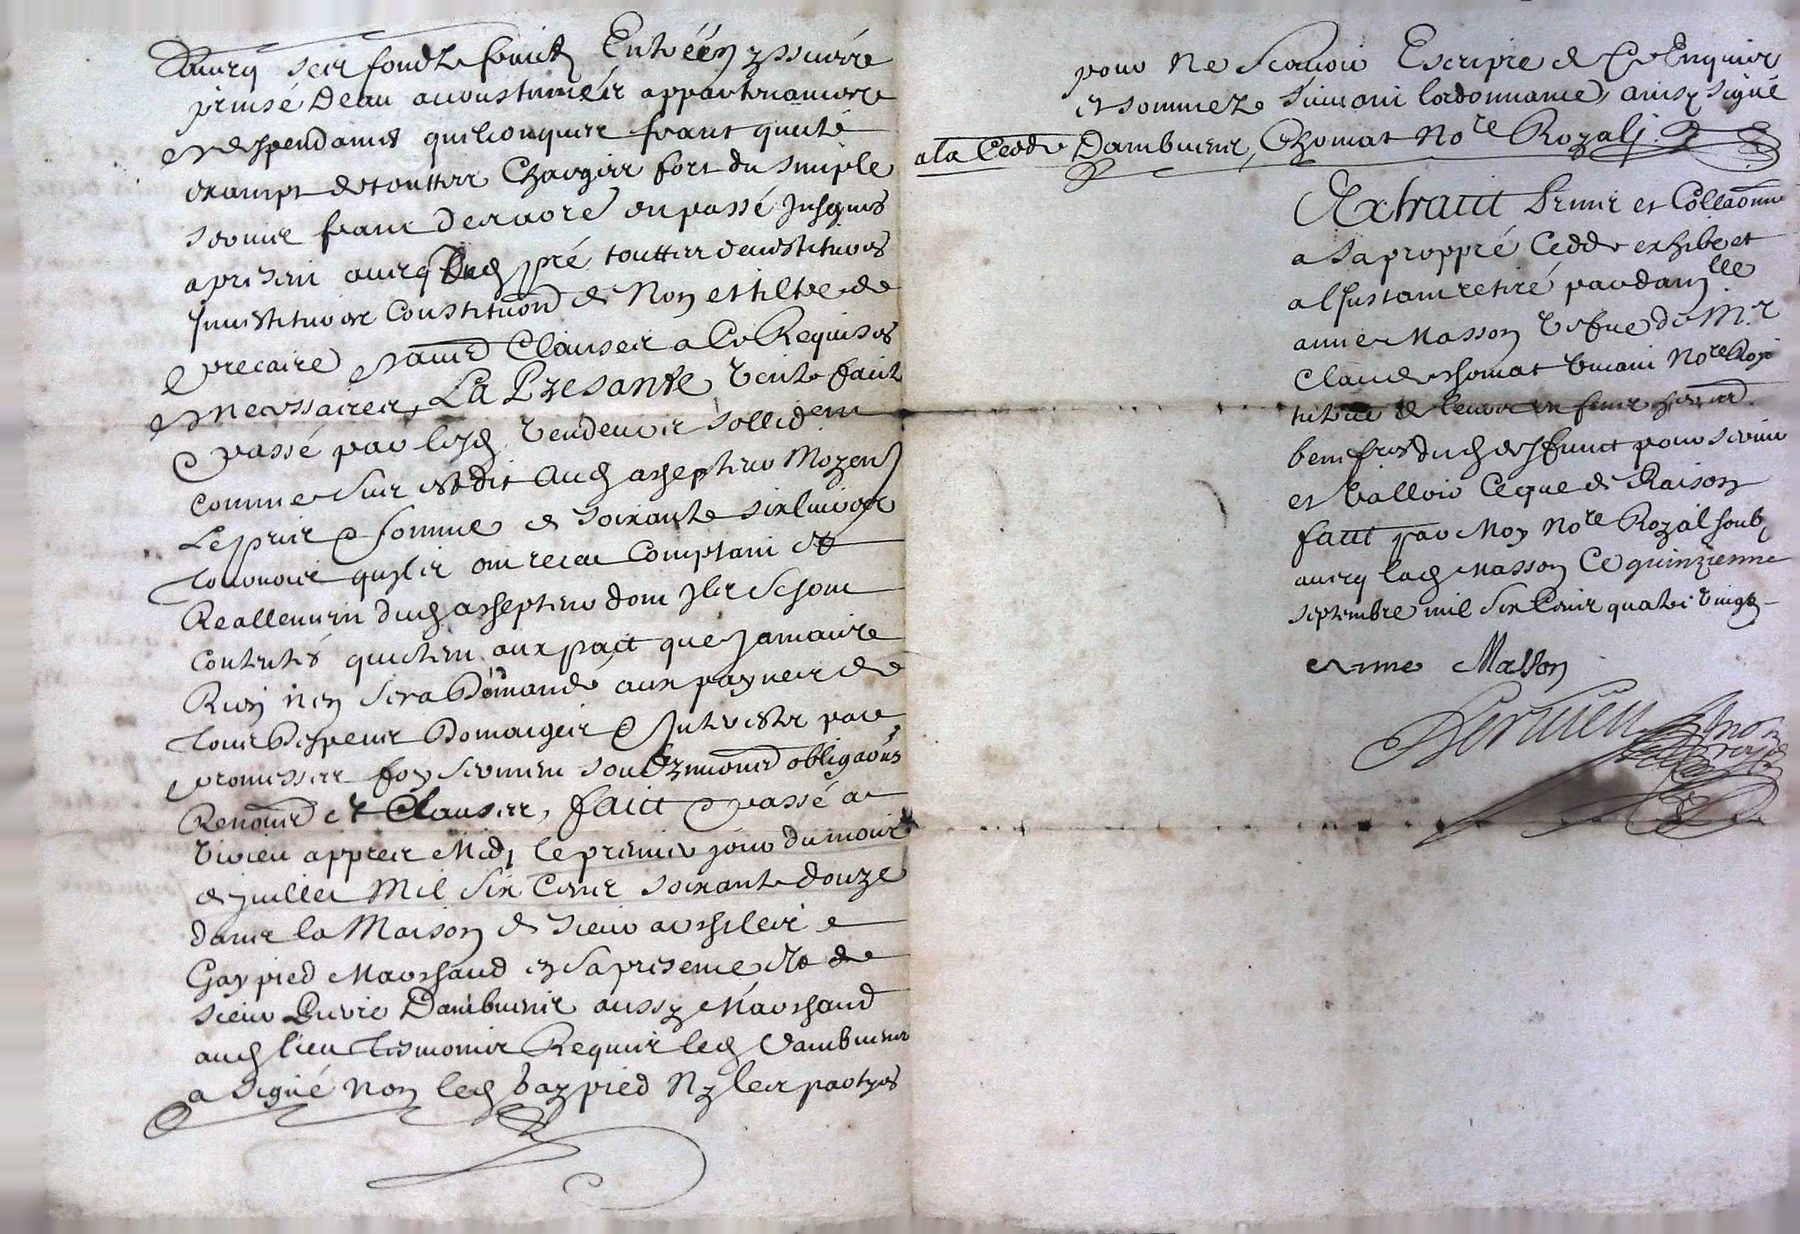 avecq ses fondz fruictz Entrées yssues
prinse deau accoustumées appartenances
et despendances quelconques franc quicte
exampt de touttes Charges fors du simple
servis franc darreraiges du passé jusques
a present avecq touttes devestitures
Investitures Constitution de Nom et tiltre de
precaire et autres Clauses a ce Requises
et necessaires, La Presante Vente faict
passé par lesd vendeurs sollidem
comme sus est dit aud achepteur Moyen
le prix & somme de soixante six livres
tournois quils ont receu comptant et
Reallement dud achepteur dont ils se sont
contentés quictent aux pact que jamais
Rien nen sera demande aux paynes de
tous despens domaiges & Interestz par
promesses foy serment soubmissions obligaons
Renonciaons et Clauses, faict & passé a
apres Midy le premier jour du mois
de juillet Mil Six Cens soixante douze
dans la Maison de sieur
Gaypied Marchand en sa presence et de
sieur Pierre Dambuent aussy Marchand
aud lieu tesmoins Requis led Dambuent
a signé non led Gaypied Ny les partyes
pour ne scavoir Escripre de ce Enquis
et sommez suivant lordonnance, ainsy signé
a la Cedde Dambuent, Thomat Nore Royal.
Extraict Prins et Collaonné
a sa proppre Cedde exhibe et
a linstant retiré par damlle
anne Masson vefve de Mr
Claude Thomat vivant Nore Roy
tutrice de leurs enfans
du d deffunct pour servir
et valloir ce que de Raison
faict par Moy Nore Royal soubz
avecq lad Masson Ce quinzienne
septembre mil six Cens quatre vingtz
anne Masson